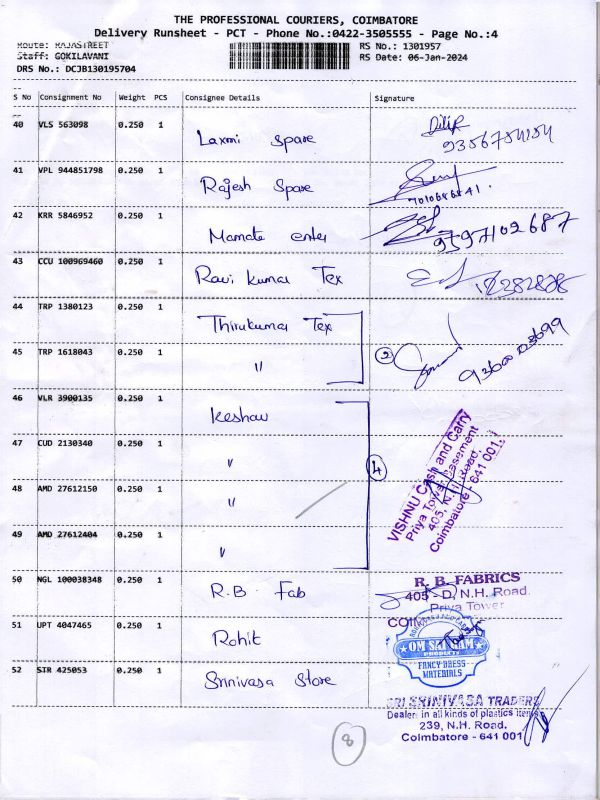 THE PROFESSIONAL COURIERS, COIMBATORE
Delivery Runsheet - PCT - Phone No.:0422-3505555 - Page No.:4
Route: RAJASTREET
RS No.: 1301957
Staff: GOKILAVANI
RS Date: 06-Jan-2024
DRS No.: DCJB130195704
S No Consignment No Weight PCS Consignee Details Signature
40 VLS 563098 0.250 1 Laxmi Spare Dilip
41 VPL 944851798 0.250 1 Rajesh Spare
7010686841.
42 KRR 5846952 0.250 1 Mamate enter 9597102687
43 CCU 100969460 0.250 1 Ravi Kumar Tex
44 TRP 1380123 0.250 1 Thirukumar Tex
45 TRP 1618043 0.250 1 " 2
46 VLR 3900135 0.250 1 Keshav
47 CUD 2130340 0.250 1 " 4
48 AMD 27612150 0.250 1 "
49 AMD 27612404 0.250 1 "
VISHNU Cash and Carry
Priya Tower Basement
405, N.H. Road.
Coimbatore - 641 001.
50 NGL 100038348 0.250 1 R.B. Fab
R. B. FABRICS
405 - D, N.H. Road.
Priya Tower
51 UPT 4047465 0.250 1 Rohit
OM SAI RAM
FANCY DRESS
MATERIALS
52 STR 425053 0.250 1 Srinivasa Store
SRI SRINIVASA TRADERS
Dealer in all kinds of plastics items
239, N.H. Road.
Coimbatore - 641 001
8